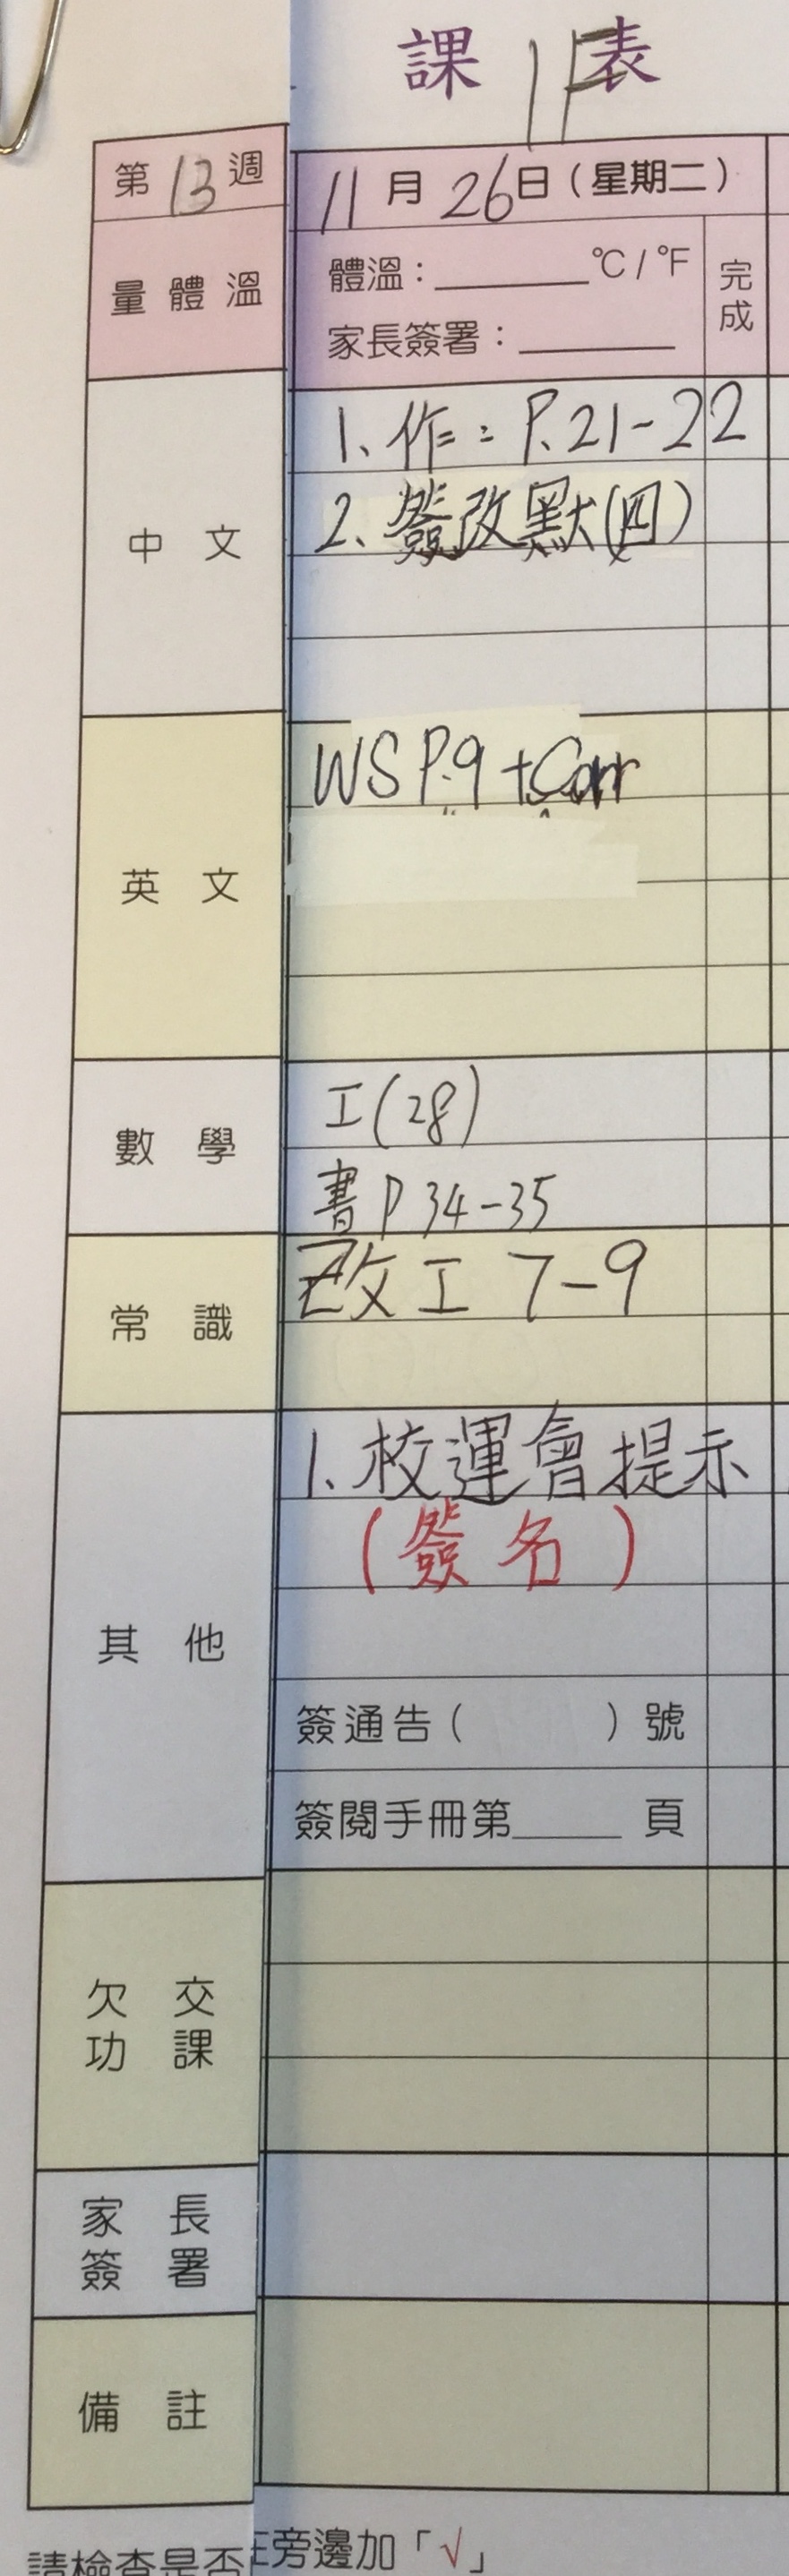 課 1F 表
第13週
11月26日(星期二)
量體溫
體溫：______℃/℉
完成
家長簽署：______
中文
1、作：P.21-22
2、簽改默(四)
英文
WS P.9 + Corr
數學
工(28)
書P 34-35
常識
改工 7-9
其他
1、校運會提示
(簽名)
簽通告( )號
簽閱手冊第______頁
欠交
功課
家長
簽署
備註
請檢查是否
旁邊加「√」